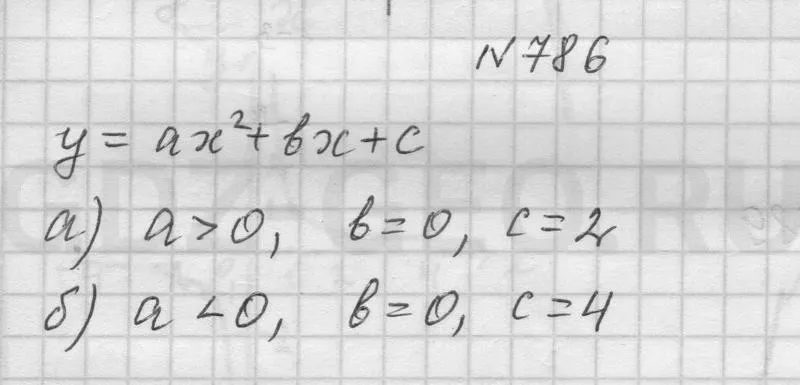 №786
y = ax² + bx + c
а) a > 0, b = 0, c = 2
б) a < 0, b = 0, c = 4